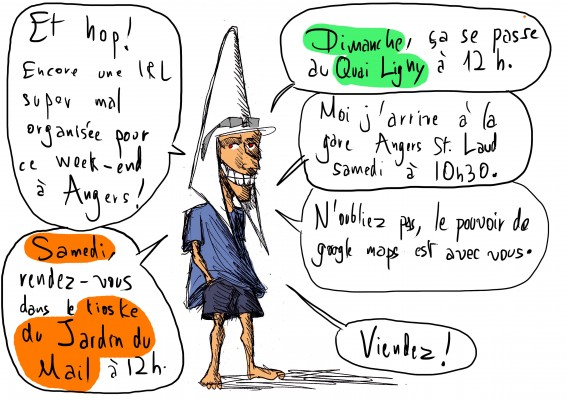 Et hop!
Encore une IRL
super mal
organisée pour
ce week-end
à Angers!
Samedi,
rendez-vous
dans le kioske
du Jardin du
Mail à 12h.
Dimanche, ça se passe
au Quai Ligny à 12h.
Moi j'arrive à la
gare Angers St. Laud
samedi à 10h30.
N'oubliez pas, le pouvoir de
google maps est avec vous.
Viendez!